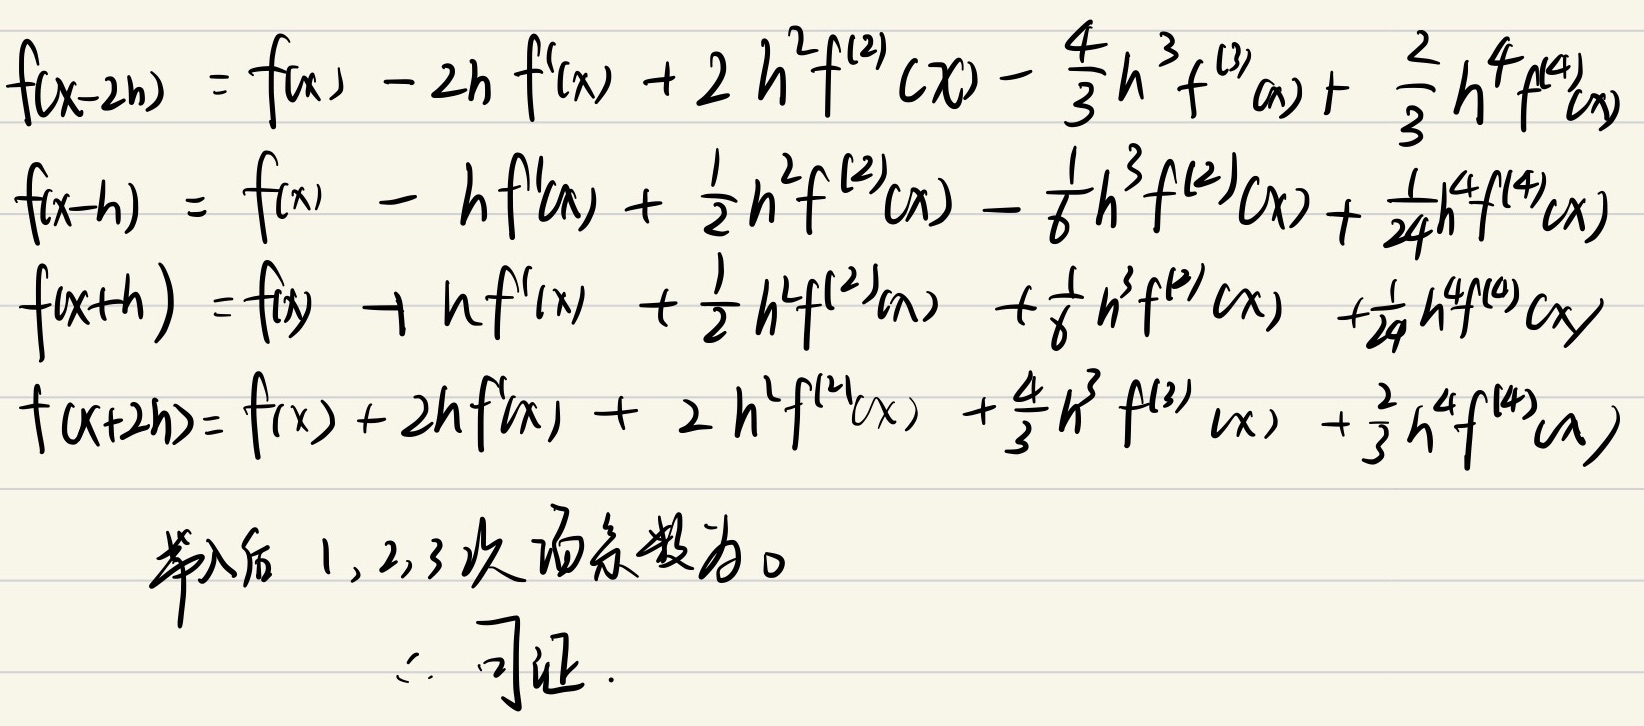 f(x-2h) = f(x) - 2h f'(x) + 2 h^2 f^{(2)}(x) - \frac{4}{3} h^3 f^{(3)}(x) + \frac{2}{3} h^4 f^{(4)}(x)
f(x-h) = f(x) - h f'(x) + \frac{1}{2} h^2 f^{(2)}(x) - \frac{1}{6} h^3 f^{(2)}(x) + \frac{1}{24} h^4 f^{(4)}(x)
f(x+h) = f(x) + h f'(x) + \frac{1}{2} h^2 f^{(2)}(x) + \frac{1}{6} h^3 f^{(2)}(x) + \frac{1}{24} h^4 f^{(4)}(x)
f(x+2h) = f(x) + 2h f'(x) + 2 h^2 f^{(2)}(x) + \frac{4}{3} h^3 f^{(3)}(x) + \frac{2}{3} h^4 f^{(4)}(x)
带入后 1, 2, 3 次项系数为0
∴ 可证.